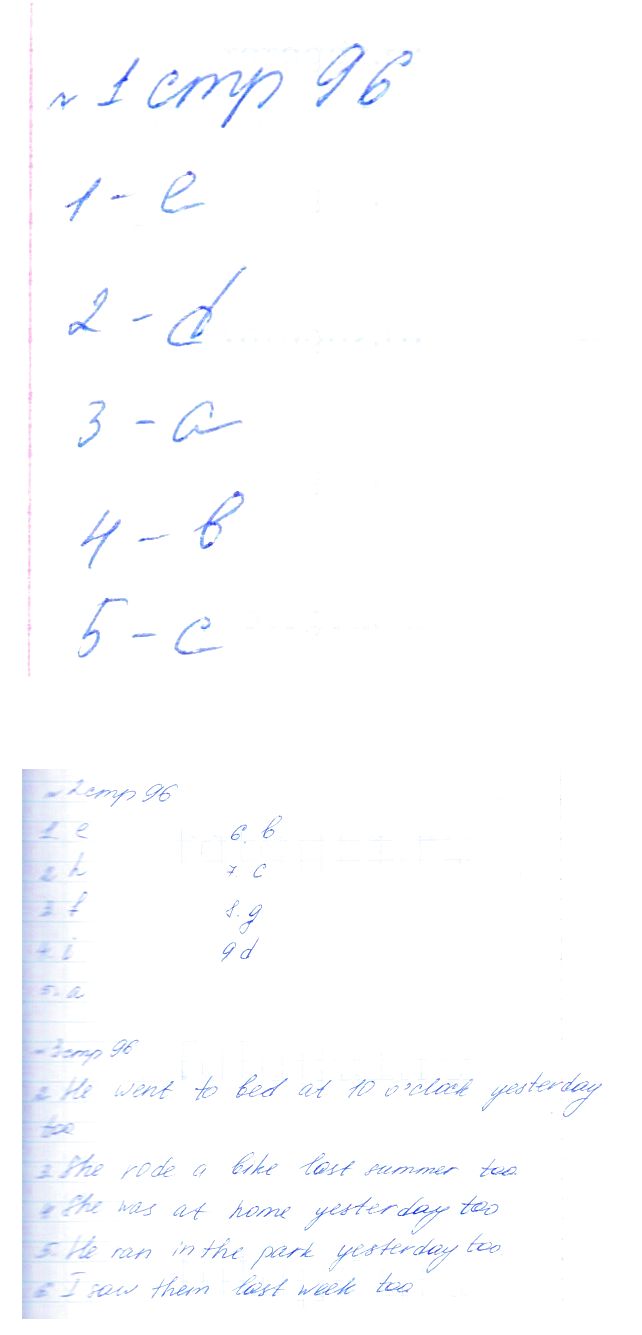 №1 стр 96
1 - e
2 - d
3 - a
4 - b
5 - c
№2 стр 96
1 e
2 h
3 f
4 i
5. a
6. b
7 c
8. g
9 d
№3 стр 96
2 He went to bed at 10 o'clock yesterday
too
3 She rode a bike last summer too
4 She was at home yesterday too
5. He ran in the park yesterday too
6 I saw them last week too